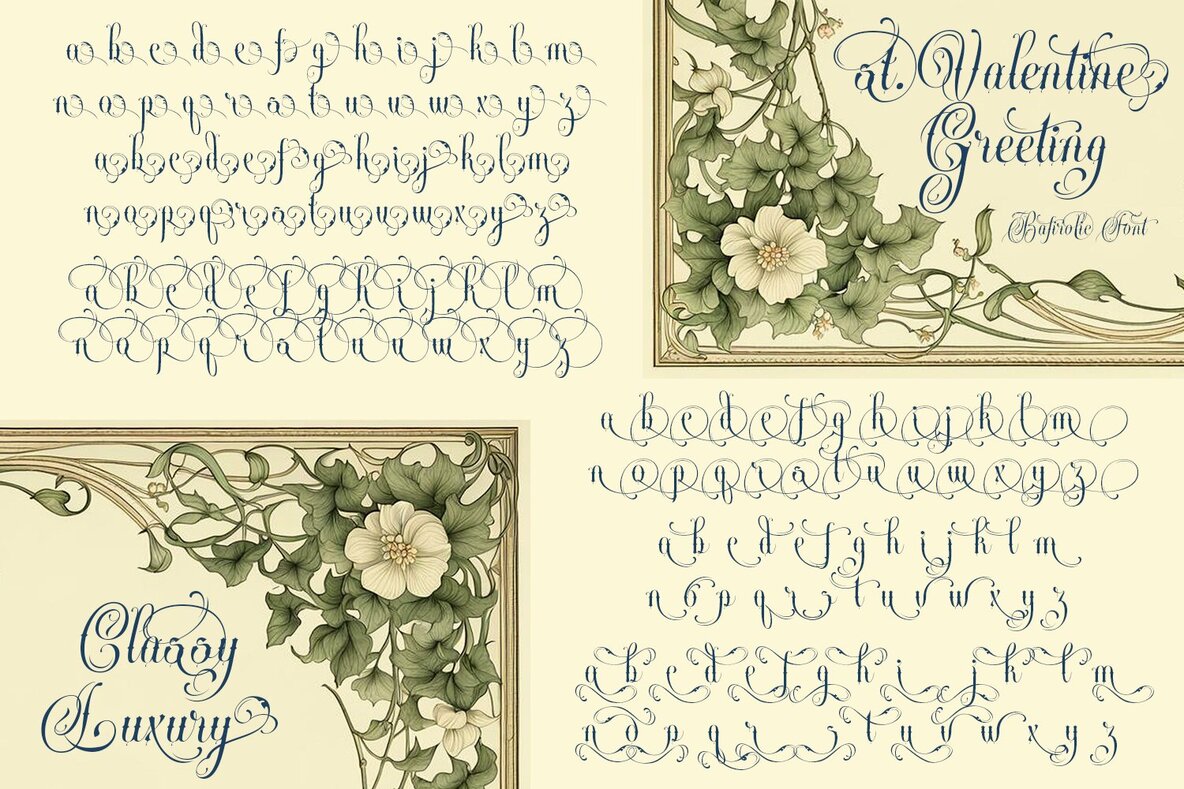 a b c d e f g h i j k l m
n o p q r s t u v w x y z
a b c d e f g h i j k l m
n o p q r s t u v w x y z
a b c d e f g h i j k l m
n o p q r s t u v w x y z
st. Valentine
Greeting
Bafirolic Font
Classy
Luxury
a b c d e f g h i j k l m
n o p q r s t u v w x y z
a b c d e f g h i j k l m
n o p q r s t u v w x y z
a b c d e f g h i j k l m
n o p q r s t u v w x y z